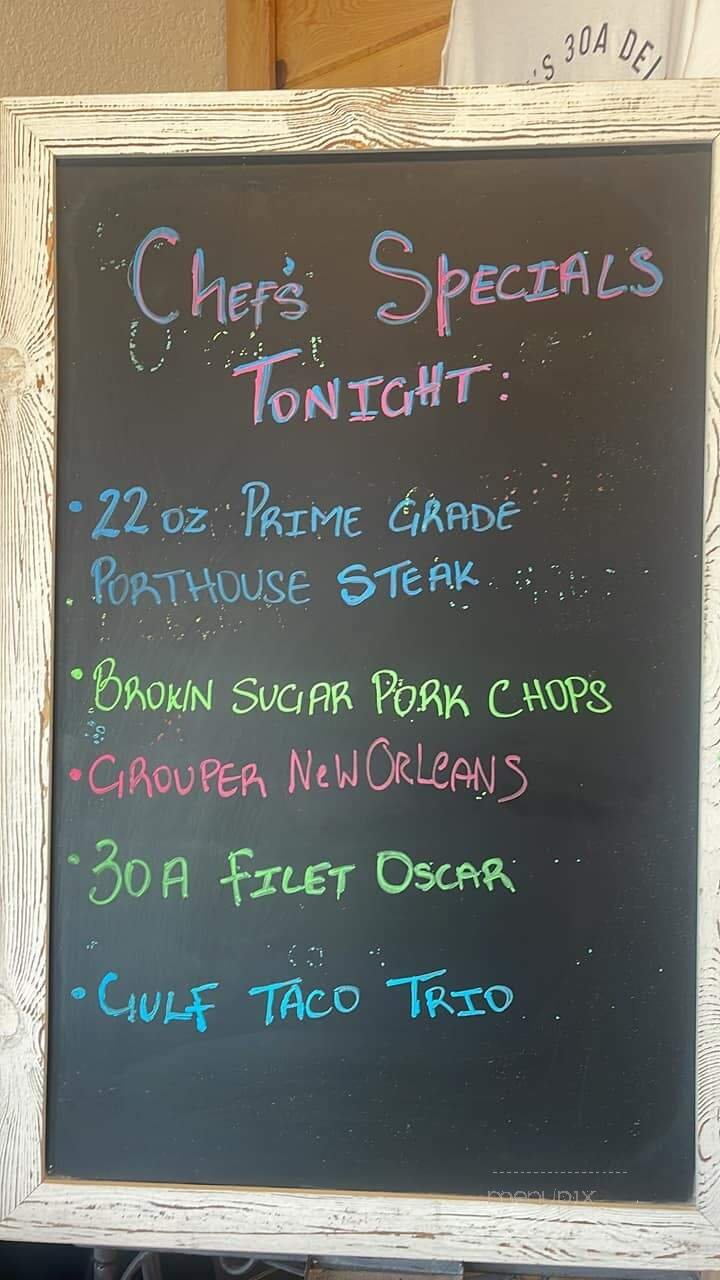 'S 30A DEL
Chef's Specials
Tonight:
• 22 oz Prime Grade
Porthouse Steak
• Brown Sugar Pork Chops
• Grouper New Orleans
• 30A Filet Oscar
• Gulf Taco Trio
menupix